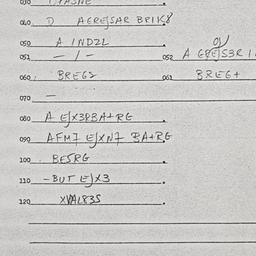 040 D AEREJSAR BRIK8
050 A INDZL
051 - / - 052 A GREJS3R
060 BREGZ 061 BREG+
070 -
080 A EJX3PBA+RE
090 AFM7 EJXN7 BA+RG
100 BESRG
110 -BUT EJX3
120 XVAL83S